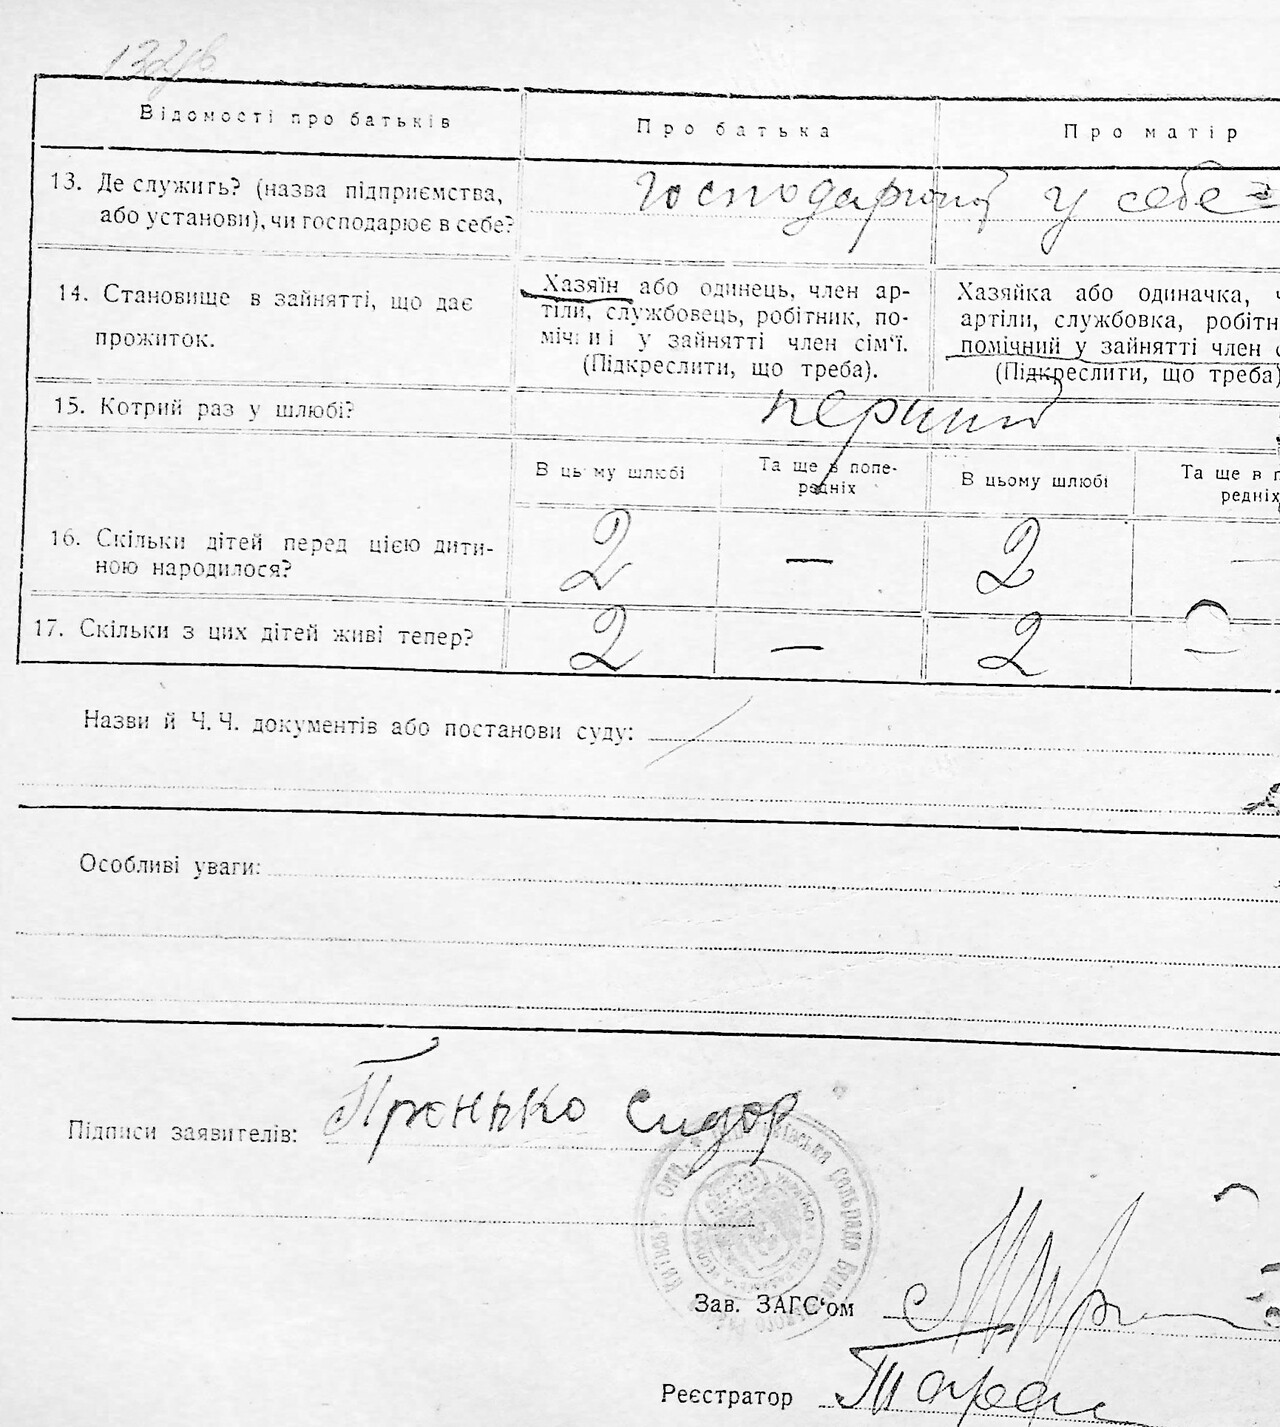 Відомості про батьків
Про батька
Про матір
13. Де служить? (назва підприємства,
або установи), чи господарює в себе?
у себе
14. Становище в зайнятті, що дає
прожиток.
Хазяїн або одинець, член ар-
тіли, службовець, робітник, по-
мічниі у зайнятті член сім'ї.
(Підкреслити, що треба).
Хазяйка або одиначка,
артіли, службовка, робітн
помічний у зайнятті член с
(Підкреслити, що треба)
15. Котрий раз у шлюбі?
перший
В цьому шлюбі
Та ще в попе-
редніх
В цьому шлюбі
Та ще в п
редніх
16. Скільки дітей перед цією дити-
ною народилося?
2
—
2
—
17. Скільки з цих дітей живі тепер?
2
—
2
—
Назви й Ч. Ч. документів або постанови суду:
Особливі уваги:
Підписи заявителів: Пронько Сидор
Зав. ЗАГС'ом
Реєстратор